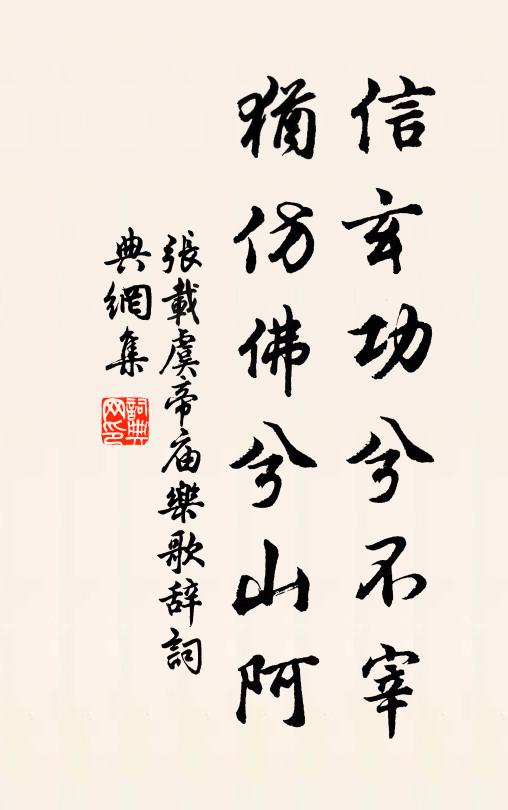 信玄功兮不宰
猶仿佛兮山阿
張載虞帝庙樂歌辞詞
典網集
詞典
网印